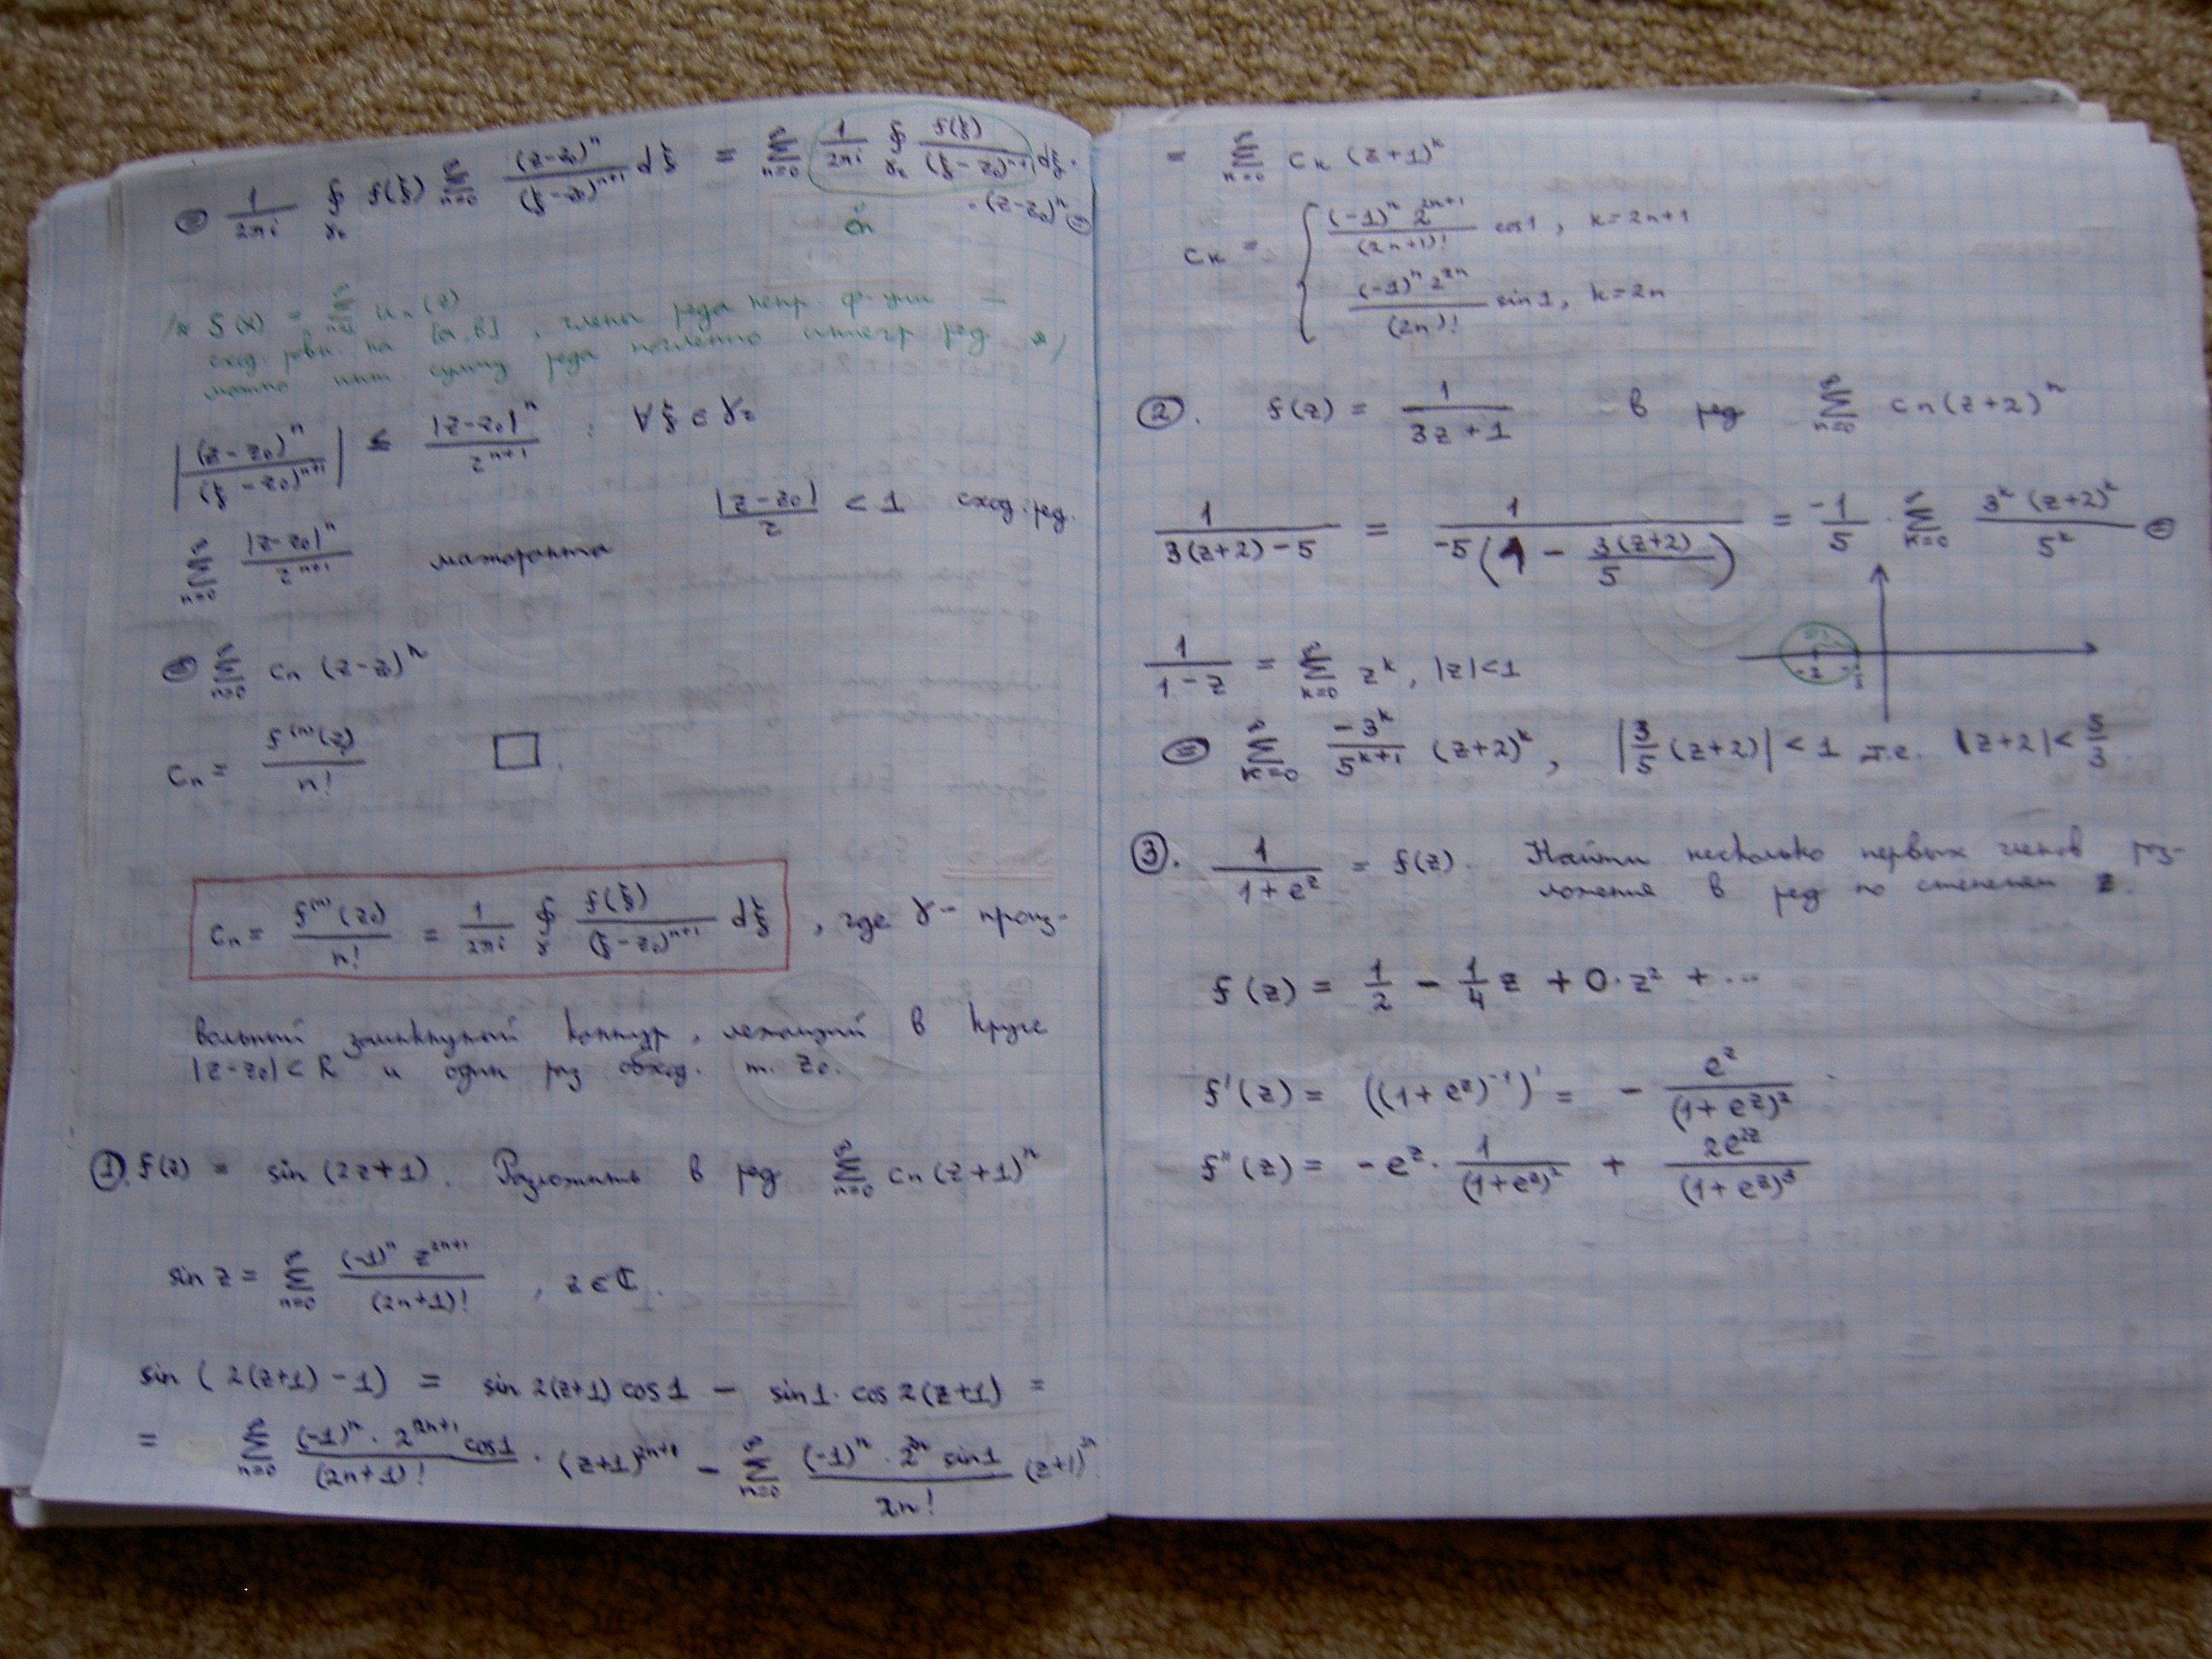 ⊜ 1/(2πi) ∮_{γ_r} f(ξ) ∑_{n=0}^{∞} (z-z₀)ⁿ/(ξ-z₀)ⁿ⁺¹ dξ = ∑_{n=0}^{∞} 1/(2πi) ∮_{γ_r} f(ξ)/(ξ-z₀)ⁿ⁺¹ dξ ·
· (z-z₀)ⁿ ⊜
cn
/* S(x) = ∑_{n=1}^{∞} Un(z)
сход. равн. на [a,b], члены ряда непр. ф-ции —
можно инт. сумму ряда почленно интегр. ряд */
|(z-z₀)ⁿ/(ξ-z₀)ⁿ⁺¹| ≤ |z-z₀|ⁿ/rⁿ⁺¹ ; ∀ξ∋γr
|z-z₀|/r < 1 сход. ряд.
∑_{n=0}^{∞} |z-z₀|ⁿ/rⁿ⁺¹ мажоранта
⊜ ∑_{n=0}^{∞} cn (z-z₀)ⁿ
cn = f⁽ⁿ⁾(z)/n! □.
cn = f⁽ⁿ⁾(z₀)/n! = 1/(2πi) ∮_γ f(ξ)/(ξ-z₀)ⁿ⁺¹ dξ , где γ - произ-
вольный замкнутый контур, лежащий в круге
|z-z₀|<R и один раз обход. т. z₀.
① f(z) = sin (2z+1). Разложить в ряд ∑_{n=0}^{∞} cn (z+1)ⁿ
sin z = ∑_{n=0}^{∞} (-1)ⁿ z²ⁿ⁺¹/(2n+1)! , z∈ℂ.
sin ( 2(z+1) - 1) = sin 2(z+1) cos 1 - sin 1 · cos 2(z+1) =
= ∑_{n=0}^{∞} (-1)ⁿ · 2²ⁿ⁺¹ cos1/(2n+1)! · (z+1)²ⁿ⁺¹ - ∑_{n=0}^{∞} (-1)ⁿ · 2²ⁿ sin1/2n! (z+1)²ⁿ
= ∑_{n=0}^{∞} cк (z+1)ᵏ
cк = { (-1)ⁿ 2²ⁿ⁺¹/(2n+1)! cos1, k=2n+1
(-1)ⁿ 2²ⁿ/(2n)! sin1, k=2n
②. f(z) = 1/(3z+1) в ряд ∑_{n=0}^{∞} cn (z+2)ⁿ
1/(3(z+2)-5) = 1/(-5(1 - 3(z+2)/5)) = -1/5 · ∑_{k=0}^{∞} 3ᵏ (z+2)ᵏ/5ᵏ ⊜
1/(1-z) = ∑_{k=0}^{∞} zᵏ, |z|<1
-2
⊜ ∑_{k=0}^{∞} -3ᵏ/5ᵏ⁺¹ (z+2)ᵏ, |3/5 (z+2)| < 1 т.е. |z+2| < 5/3.
③. 1/(1+eᶻ) = f(z). Найти несколько первых членов раз-
ложения в ряд по степеням z.
f(z) = 1/2 - 1/4 z + 0·z² + ...
f'(z) = ((1+eᶻ)⁻¹)' = - eᶻ/(1+eᶻ)²
f''(z) = -eᶻ · 1/(1+eᶻ)² + 2e²ᶻ/(1+eᶻ)³